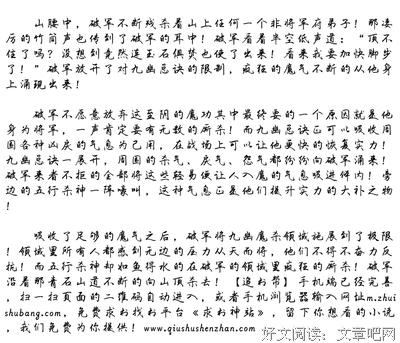 山腰中，破军不断残杀着山上任何一个非将军府弟子！那凄
厉的竹简声也传到了破军的耳中！破军看着半空低声道：“顶不
住了吗？没想到竟然连玉石俱焚也使了出来！看来我要加快脚步
了！”破军放开了对九幽忌诀的限制，疯狂的魔气不断的从他身
上涌现出来！
破军不愿意放弃这至阴的魔功其中最终要的一个原因就是他
身为将军，一声肯定要有无数的厮杀！而九幽忌诀正可以吸收周
围各种凶戾的气息为己用，在战场上可以让他更快的恢复实力！
九幽忌诀一展开，周围的杀气、戾气、怨气都纷纷向破军涌来！
破军来者不拒的全部将这些轻易便让人入魔的气息吸进体内！旁
边的五行杀神一阵嚎叫，这种气息正是他们提升实力的大补之物
！
吸收了足够的魔气之后，破军将九幽魔杀领域施展到了极限
！领域里所有人都感到无边的压力从天而降，他们不得不奋力反
抗！而五行杀神却如鱼得水的在破军的领域里疯狂的厮杀！破军
沿着那青石山道不断的向山顶杀去！【追书帮】手机端已经完
善，扫一扫页面的二维码自动进入，或者手机浏览器输入网址m.zhui
shubang.com，免费求书找书平台《求书神站》，留下你想看的小说
，我们免费为你提供！www.qiushushenzhan.com
好文阅读：文章吧网